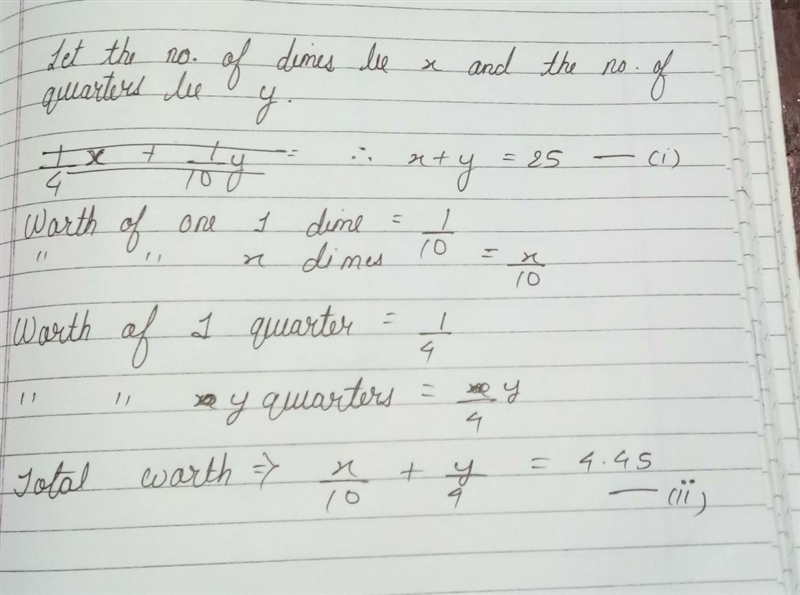 Let the no. of dimes be x and the no. of
quarters be y.
1/4 x + 1/10 y = ∴ x + y = 25 — (i)
Warth of one 1 dime = 1/10
" " x dimes = x/10
Warth of 1 quarter = 1/4
" " y quarters = y/4
Total warth ⇒ x/10 + y/4 = 4.45
— (ii)